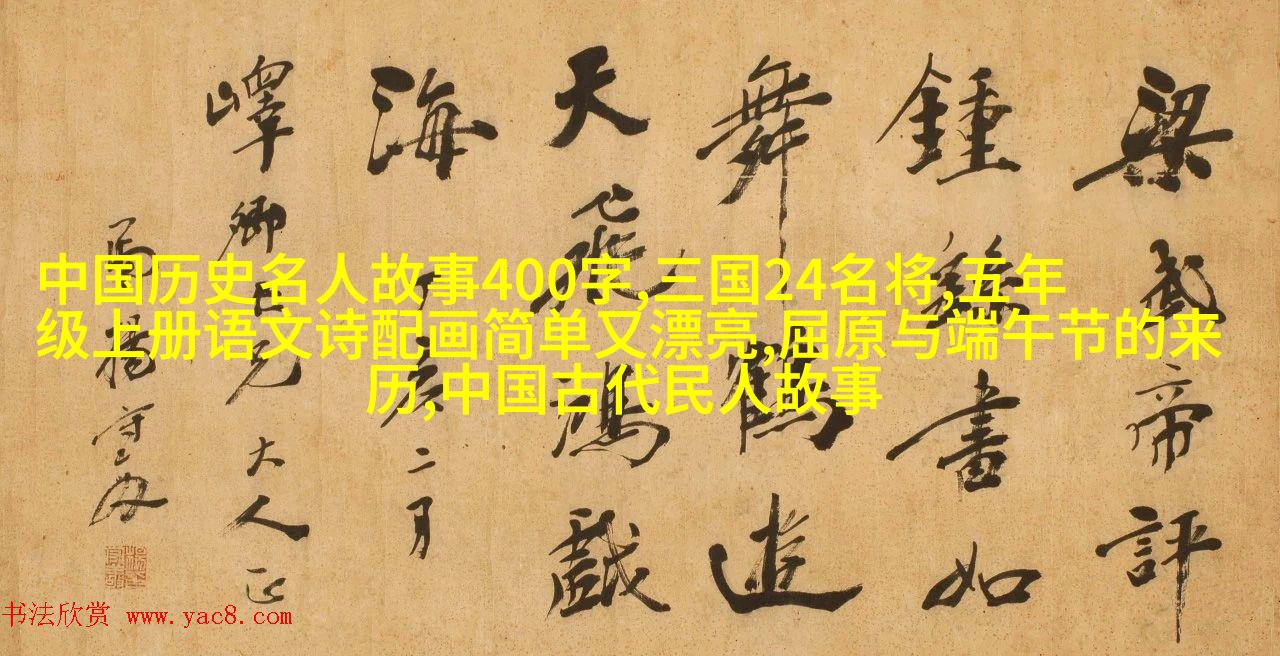 梁武帝評
鍾繇書如
舞鶴遊
天飛鴻戲
海 丁亥二月
嶧卿世兄大人正
楊守敬
中国历史名人故事400字,三国24名将,五年
级上册语文诗配画简单又漂亮,屈原与端午节的来
历,中国古代民人故事
书法欣赏 www.yac8.com